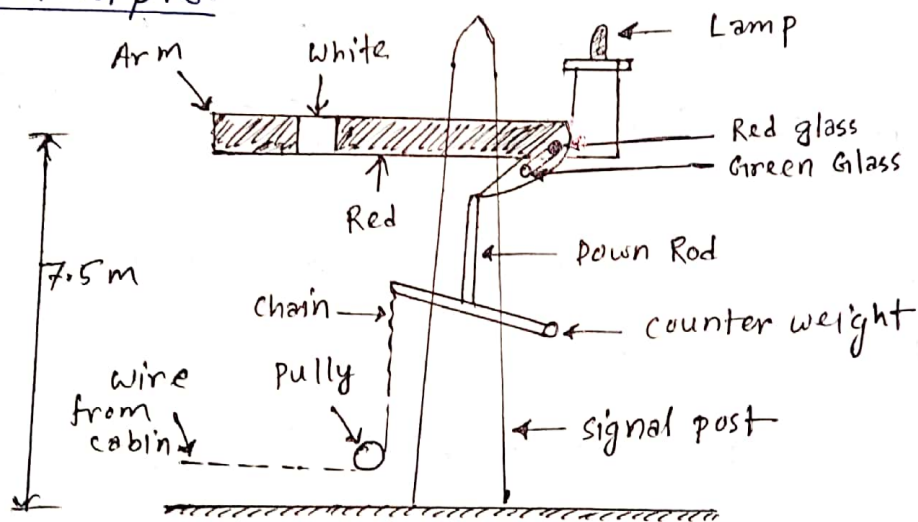 Arm
White
Lamp
Red glass
Green Glass
Red
Down Rod
7.5m
chain
counter weight
wire
from
cabin
Pully
signal post